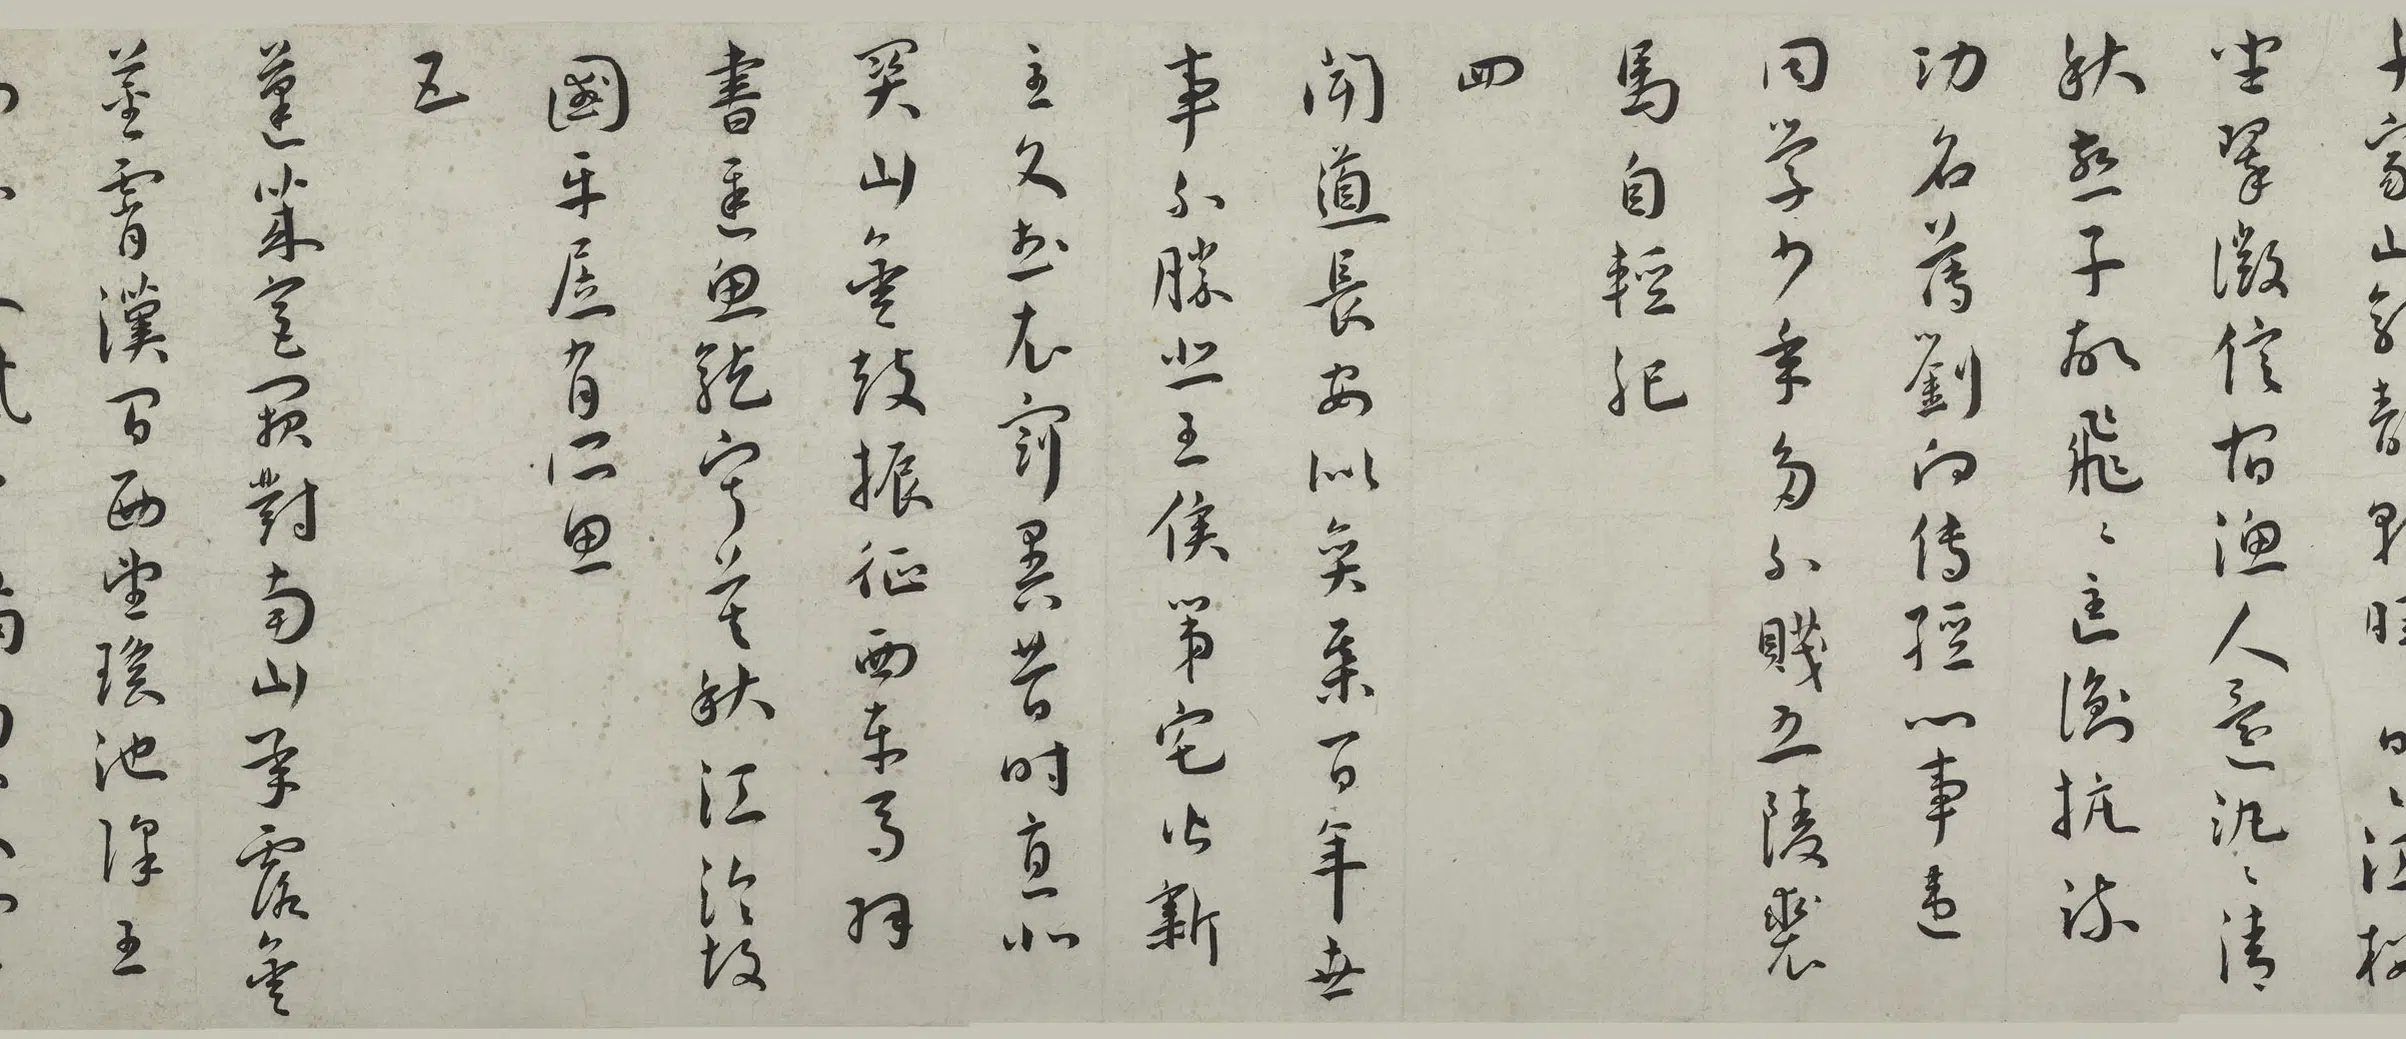 千家山郭静朝暉日〻江樓
坐翠微信宿漁人還汎〻清
秋燕子故飛〻匡衡抗疏
功名薄劉向傳經心事違
同学少年多不賤五陵裘
馬自輕肥
四
聞道長安似奕棊百年世
事不勝悲王侯第宅皆新
主文武衣冠異昔時直北
關山金鼓振征西車馬羽
書遲魚龍寂寞秋江冷故
國平居有所思
五
蓬萊宮闕對南山承露金
莖霄漢間西望瑶池降王